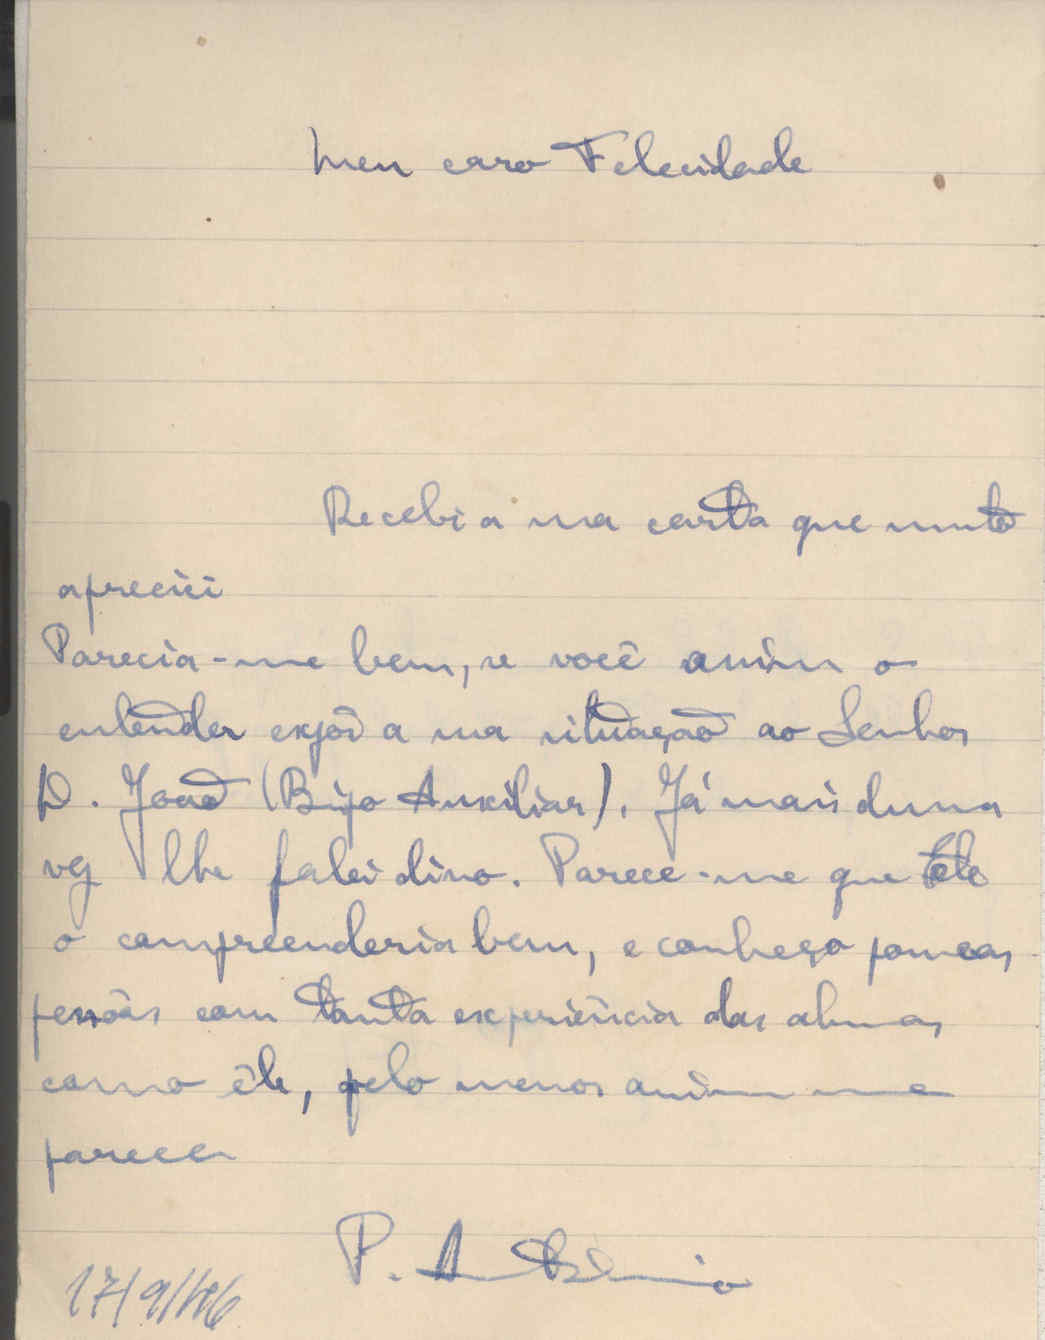 Meu caro Felicidade
Recebi a sua carta que muito
apreciei
Parecia-me bem, se você assim o
entender expôr a sua situação ao Senhor
D. João (Bispo Auxiliar). Já mais duma
vez lhe falei disso. Parece-me que êle
o compreenderia bem, e conheço poucas
pessôas com tanta experiência das almas
como êle, pelo menos assim me
parece
P. António
17/9/46